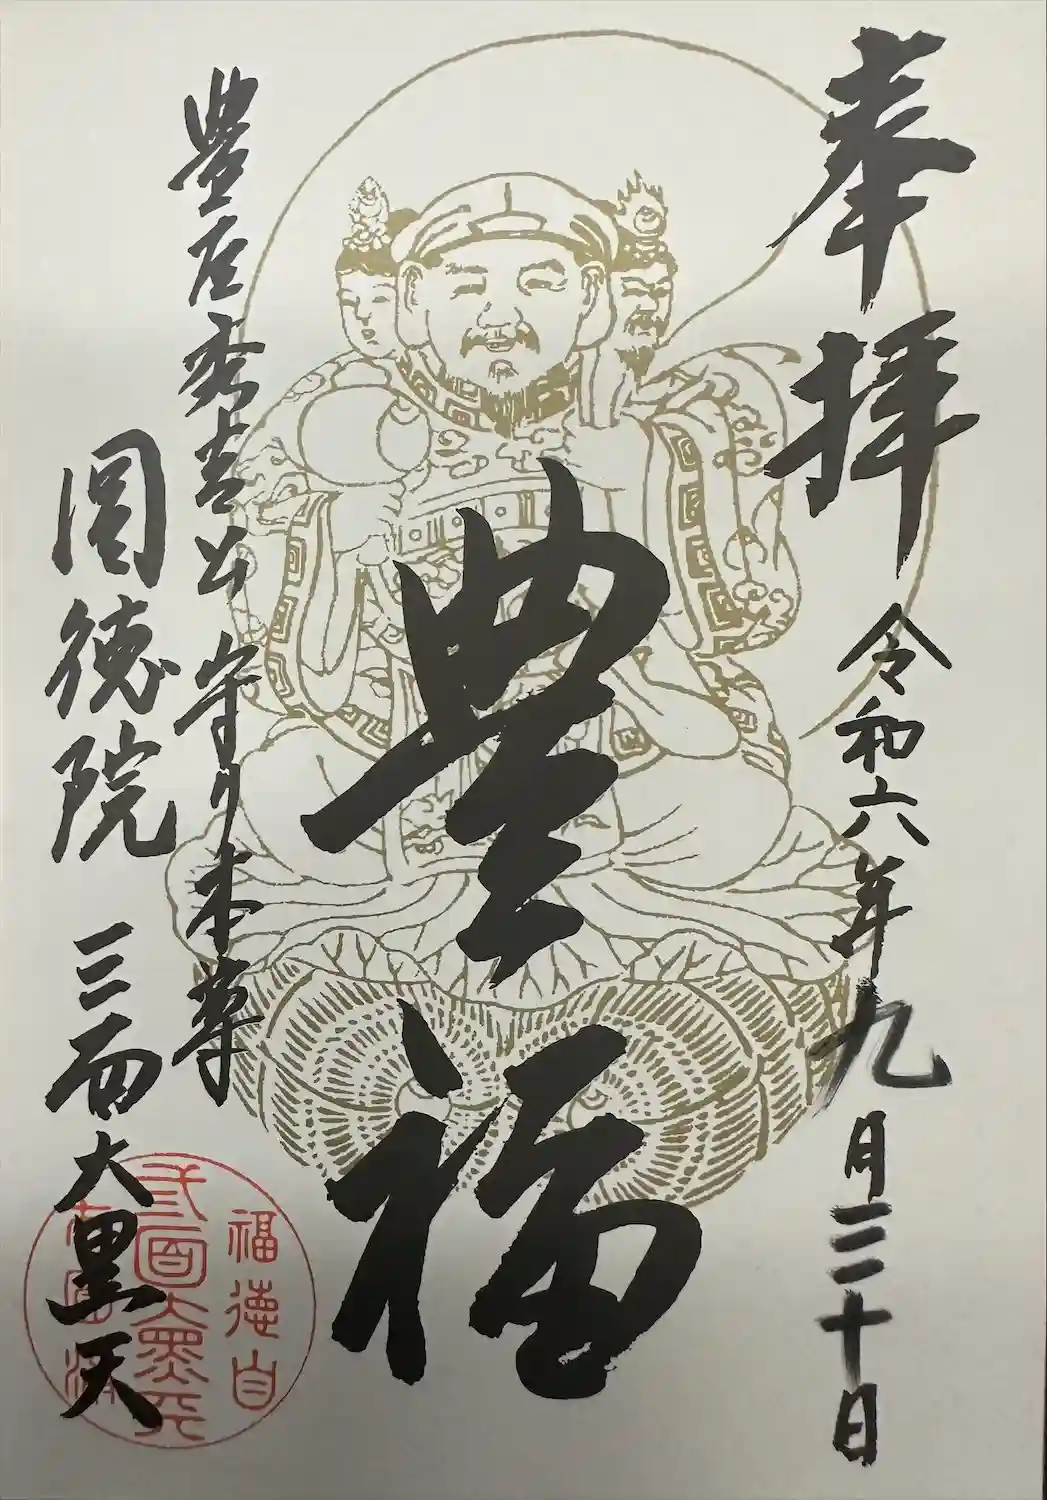 奉拝
令和六年九月三十日
豊福
豊臣秀吉公守り本尊
圓徳院 三面大黒天
福徳自